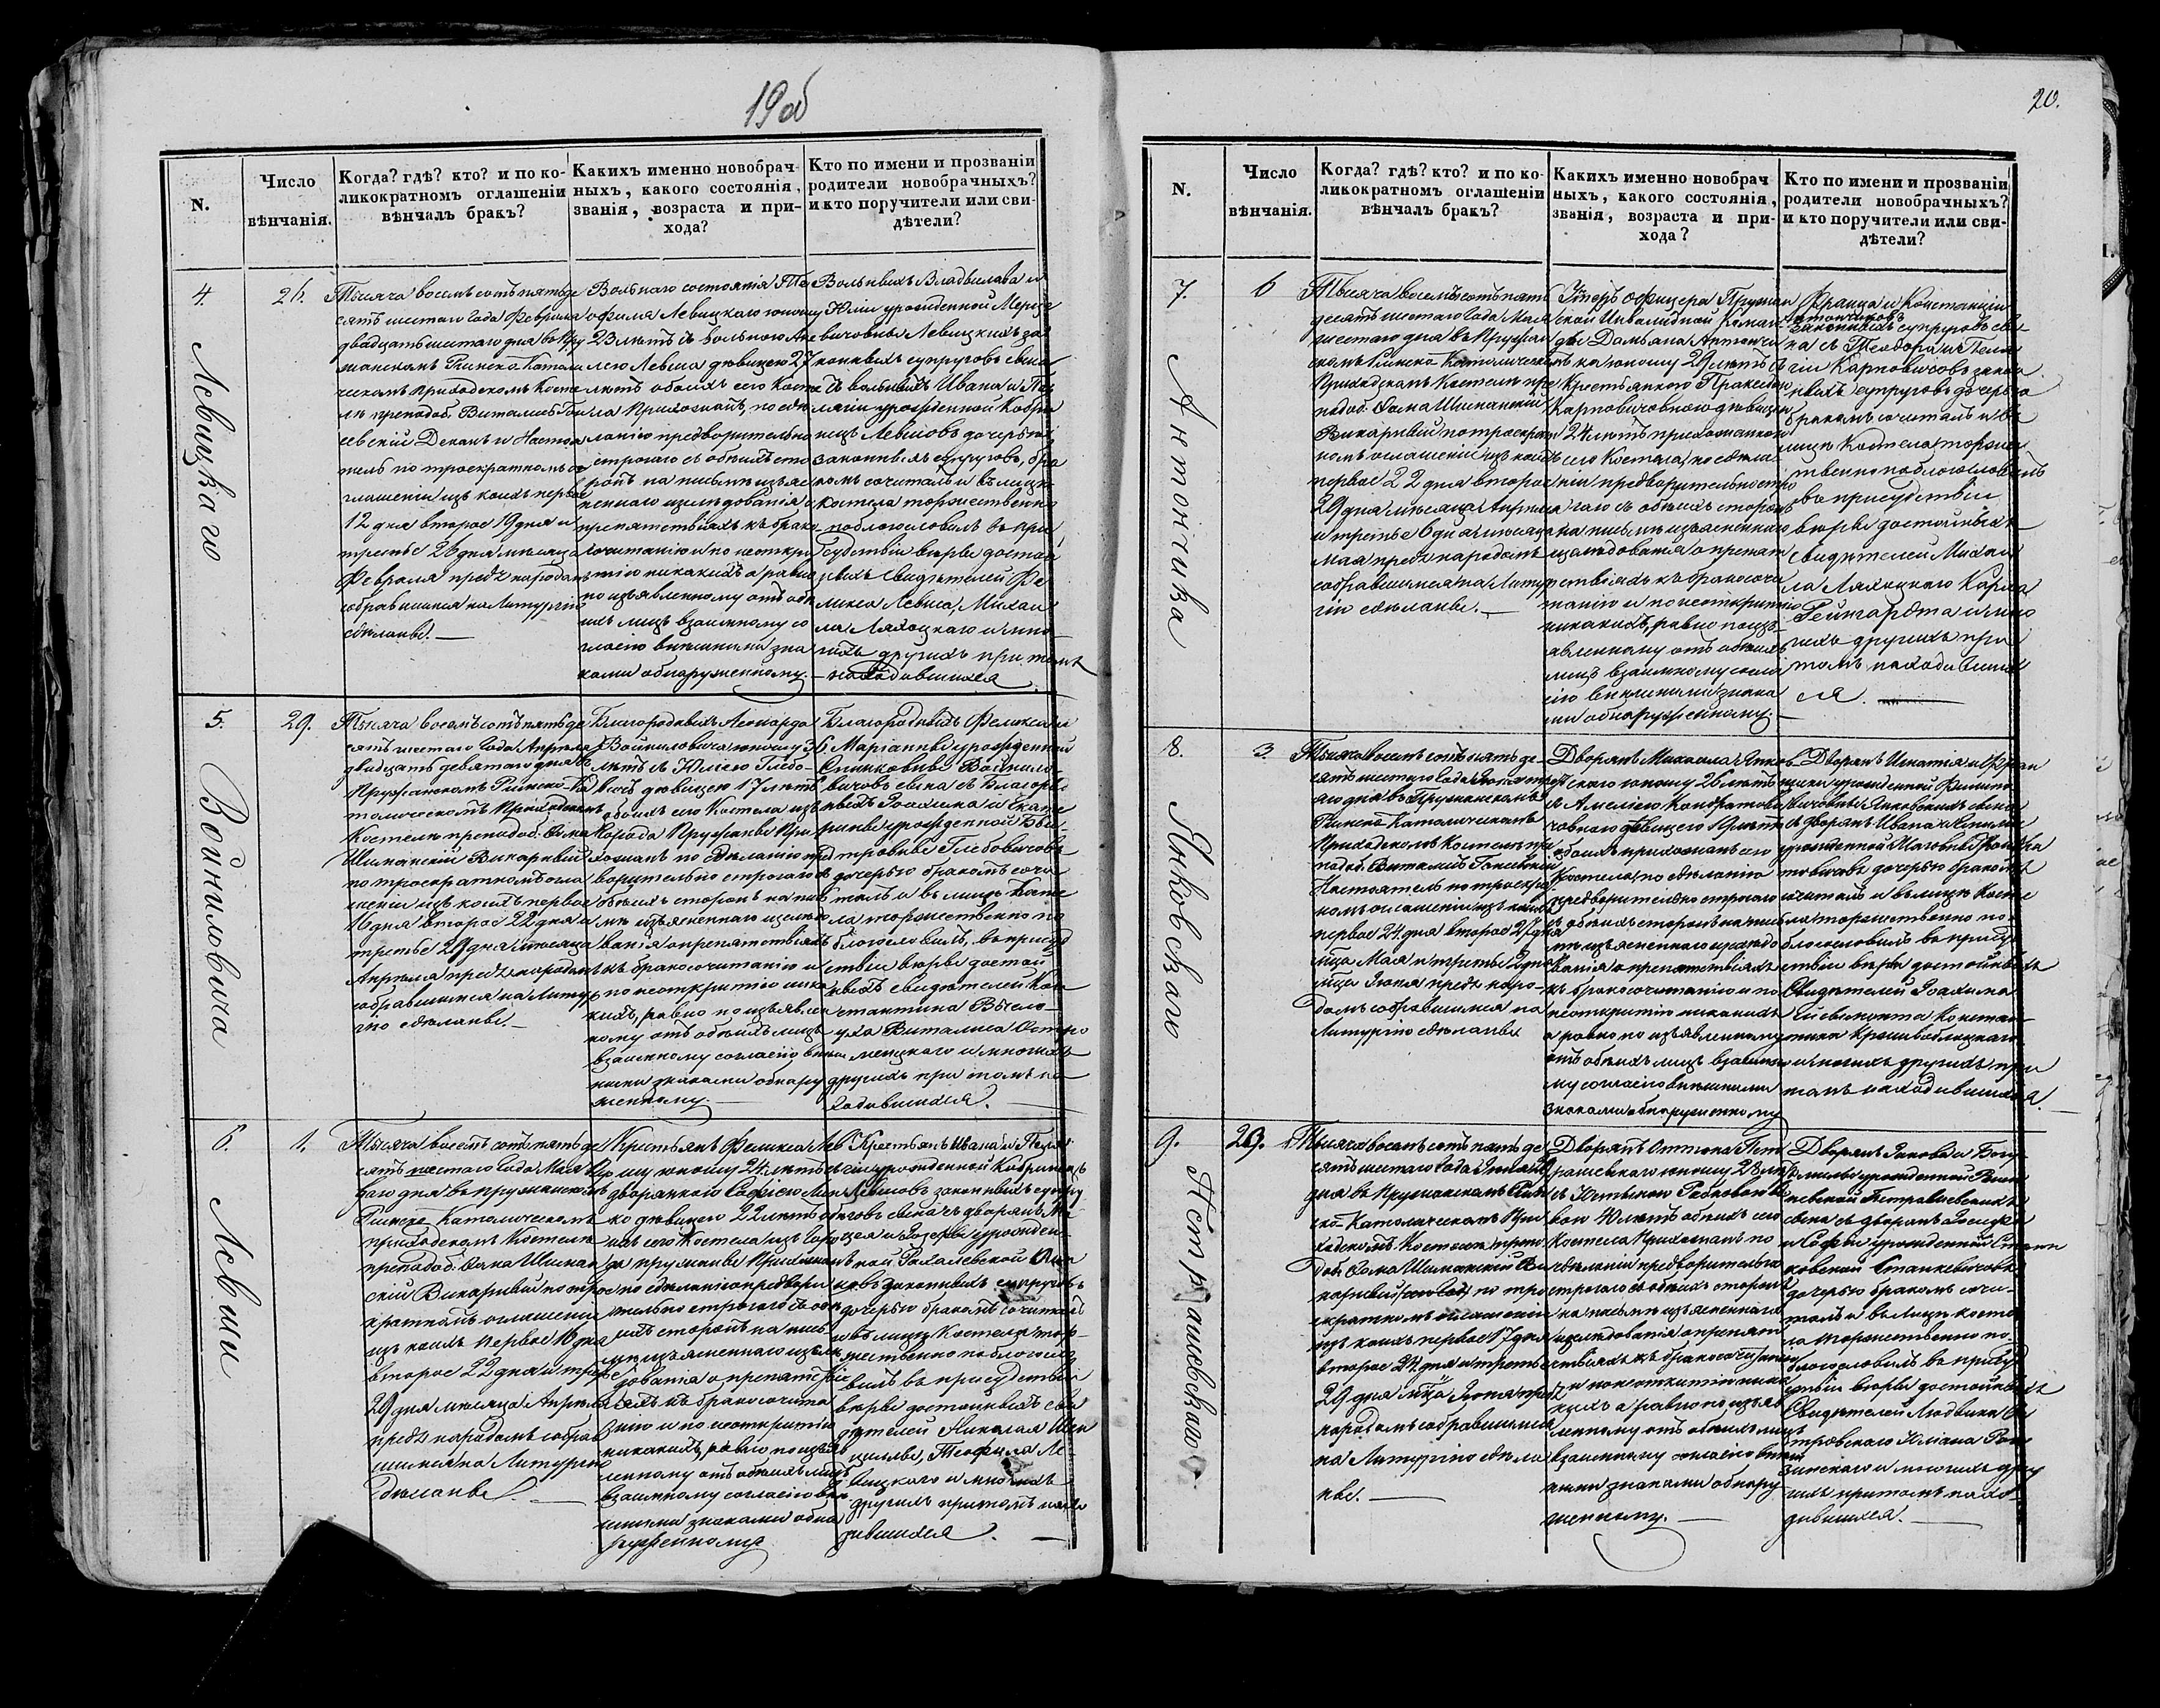 19 об
N.
Число
вѣнчанія.
Когда? гдѣ? кто? и по ко-
ликократномъ оглашеніи
вѣнчалъ бракъ?
Какихъ именно новобрач-
ныхъ, какого состоянія,
званія, возраста и при-
хода?
Кто по имени и прозваніи
родители новобрачныхъ?
и кто поручители или сви-
дѣтели?
4.
Левицкаго
26.
Тысяча восемьсотъ пятьде
сятъ шестаго года Февраля
двадцать шестаго дня въ Пру
жанскомъ Римско-Католи
ческомъ Приходскомъ Косте
лѣ препод. Виталисъ
Деканъ и Настоя
тель по троекратномъ о
глашеніи изъ коихъ первое
12 дня второе 19 дня и
третье 26 дня мѣсяца
Февраля предъ народомъ
собравшимся на Литургію
сдѣланы.
Вольнаго состоянія Те
офиля Левицкаго юношу
23 лѣтъ съ вольною Ан
лею Левша дѣвицею 27
лѣтъ обоихъ сего Косте
ла Прихожанъ, по сдѣ
ланію предворительно
строгаго съ обѣихъ сто
ронъ на письмѣ изъяс
неннаго изслѣдованія о
препятствіяхъ къ брако
сочитанію и по неоткры
тію никакихъ а равно
по изъявленному отъ обѣ
ихъ лицъ взаимному со
гласію внѣшними зна
ками обнаруженному.
Вольныхъ Владыслава и
Юліи урожденной
Левицкихъ за
конныхъ супруговъ сына
съ вольныхъ Ивана и Пе
лягіи урожденной Кобри
нецъ Левшовъ дочерью
законныхъ супруговъ, бра
комъ сочиталъ и въ лицѣ
Костела торжественно
поблогословилъ въ при
судствіи вѣры достой
ныхъ Свидѣтелей Фе
ликса Левша, Михаи
ла Ляхоцкаго и мно
гихъ другихъ при томъ
находившихся.
5.
Войниловича
29.
Тысяча восемьсотъ пятьде
сятъ шестаго года Апрѣля
двадцать девятаго дня въ
Пружанскомъ Римско-Ка
толическомъ Приходскомъ
Костелѣ препод. Фома
Шиманскій Викарный
по троекратномъ огла
шеніи изъ коихъ первое
16 дня второе 22 дня и
третье 29 дня мѣсяца
Апрѣля предъ народомъ
собравшимся на Литур
гію сдѣланы.
Благородныхъ Леонарда
Войниловича юношу 36
лѣтъ съ Юліею Глебо-
вичъ дѣвицею 17 лѣтъ
обоихъ сего Костела изъ
Города Пружаны При
хожанъ по сдѣланію пред
ворительно строгаго съ
обѣихъ сторонъ на пись
мѣ изъясненнаго изслѣдо
ванія о препятствіяхъ
къ бракосочитанію и
по неоткрытію ника
кихъ, равно по изъявлен
ному отъ обѣихъ лицъ
взаимному согласію внѣш
ними знаками обнару
женному.
Благородныхъ Феликса и
Маріанны урожденной
Войнило
вичовъ сына съ Благород
ныхъ и Екате
рины урожденной
Глебовичовъ
дочерью бракомъ сочи
талъ и въ лицѣ Косте
ла торжественно по
блогословилъ, въ присуд
ствіи вѣры достой
ныхъ свидѣтелей Кон
стантина
Виталиса Остро
менцкаго и многихъ
другихъ при томъ на
ходившихся.
6.
Левши
1.
Тысяча восемьсотъ пятьде
сятъ шестаго года Мая 1
ваго дня въ пружанскомъ
Римско Католическомъ
приходскомъ Костелѣ
препадоб. Фома Шиман
скій Викарный по трое
кратномъ оглашеніи
изъ коихъ первое 16 дня
второе 22 дня и третье
29 дня мѣсяца Апрѣля
предъ народомъ собрав
шимся на Литургію
сдѣланы.
Крестьянъ Феликса Лев
шу юношу 24 лѣтъ съ
дворянкою Софіею Мин
ко дѣвицею 22 лѣтъ обо
ихъ сего Костела изъ горо
да пружаны Прихожанъ
по сдѣланію предвори
тельно строгаго съ обѣ
ихъ сторонъ на пись
мѣ изъясненнаго изслѣ
дованія о препятстві
яхъ къ бракосочита
нію и по неоткрытію
никакихъ, равно по изъяв
ленному отъ обѣихъ лицъ
взаимному согласію внѣ
шними знаками обна
руженному
Крестьянъ Ивана и Пеля
гіи урожденной Кобринецъ
Левшовъ законныхъ супру
говъ сына съ дворянъ
и Іозефы урожден
ной
законныхъ супруговъ
дочерью бракомъ сочиталъ
и въ лицѣ Костела тор-
жественно поблогосло
вилъ въ присудствіи
вѣры достойныхъ сви
дѣтелей Николая
Теофиля Ле
вицкаго и многихъ
другихъ притомъ нахо
дившихся.
20.
N.
Число
вѣнчанія.
Когда? гдѣ? кто? и по ко-
ликократномъ оглашеніи
вѣнчалъ бракъ?
Какихъ именно новобрач
ныхъ, какого состоянія,
званія, возраста и при-
хода?
Кто по имени и прозваніи
родители новобрачныхъ?
и кто поручители или сви-
дѣтели?
7.
Антончика
6
Тысяча восемьсотъ пять
десятъ шестаго года Мая
шестаго дня въ Пружан
скомъ Римско-Католическомъ
Приходскомъ Костелѣ пре
подоб. Фома Шиманскій
Викарный по троекрат
номъ оглашеніи изъ коихъ
первое 22 дня второе
29 дня мѣсяца Апрѣля
и третье 6 дня мѣсяца
мая предъ народомъ
собравшимся на Литур
гіи сдѣланы.
Унтеръ офицера Пружан
ской Инвалидной Коман
ды Дамьяна Антончи
ка юношу 29 лѣтъ съ
Крестьянкою Праксею
Карповичовною дѣвицею
24 лѣтъ прихожанкою
сего Костела, по сдѣла
ніи предворительно стро
гаго съ обѣихъ сторонъ
на письмѣ изъясненнаго
изслѣдованія о препят
ствіяхъ къ бракосоче
танію и по неоткрытію
никакихъ, равно по изъ
авленному отъ обѣихъ
лицъ взаимному согла
сію внѣшними знака
ми обнаруженному.
Франца и Констанціи
Антончиковъ
законныхъ супруговъ сы
на съ Теодора и Пела
гіи Карповичовъ закон
ныхъ супруговъ дочерью
бракомъ сочиталъ и въ
лицѣ Костела торжес
твенно поблогословилъ
въ присудствіи
вѣры достойныхъ
Свидѣтелей Михаи
ла Ляхоцкаго Карла
Рейнгардта и мно
гихъ другихъ при
томъ находивших
ся.
8.
Янковскаго
3.
Тысяча восемьсотъ пятьде-
сятъ шестаго года Іюня треть
яго дня въ Пружанскомъ
Римско-Католическомъ
Приходскомъ Костелѣ пре
подоб. Виталисъ
Настоятель по троекрат
номъ оглашеніи изъ коихъ
первое 24 дня второе 27 дня
м-ца Мая и третье 2 дня
м-ца Іюня предъ наро-
домъ собравшимся на
Литургію сдѣланы
Дворянъ Михаила Янков
скаго юношу 26 лѣтъ
съ Амеліею Кондратови
човною дѣвицею 19 лѣтъ
обоихъ прихожанъ сего
Костела, по сдѣланію
предворительно строгаго
съ обѣихъ сторонъ на пись
мѣ изъясненнаго изслѣдо
ванія о препятствіяхъ
къ бракосочитанію и по
неоткрытію никакихъ
а равно по изъявленному
отъ обѣихъ лицъ взаимно
му согласію внѣшними
знаками обнаруженному
Дворянъ Игнатія и Фран
цишки урожденной
Янковскихъ сына
съ дворянъ Ивана и
урожденной Кондра
товичовъ дочерью бракомъ
сочиталъ и въ лицѣ Косте
ла торжественно по-
блогословилъ въ присуд
ствіи вѣры достойныхъ
Свидѣтелей Іоахима
Констан
тина
и многихъ другихъ при
томъ находившихся.
9.
Петрашевскаго
29.
Тысяча восемьсотъ пятьде
сятъ шестаго года Іюня 29
дня въ Пружанскомъ Рим
ско-Католическомъ При
ходскомъ Костелѣ препо
доб. Фома Шиманскій Ви
карный по трое
кратномъ оглашеніи
изъ коихъ первое 17 дня
второе 24 дня и третье
29 дня м-ца Іюня предъ
народомъ собравшимся
на Литургію сдѣла
ны.
Дворянъ Оттона Пет
рашевскаго юношу 28 лѣтъ
съ Юстыною
обѣихъ сего
Костела Прихожанъ по
сдѣланіи предворительно
строгаго съ обѣихъ сторонъ
на письмѣ изъясненнаго
изслѣдованія о препят
ствіяхъ къ бракосочитанію
и по неоткрытіи ника
кихъ а равно по изъяв
ленному отъ обѣихъ лицъ
взаимному согласію внѣш
ними знаками обнару
женному.
Дворянъ Якова и Богу
милы урожденной
Петрашевскихъ
сына съ дворянъ Іосифа
и Софіи урожденной
Станкевичовъ
дочерью бракомъ сочи-
талъ и въ лицѣ косте
ла торжественно по-
блогословилъ въ присуд
ствіи вѣры достойныхъ
Свидѣтелей Людвика
Юліана
и многихъ дру
гихъ притомъ нахо-
дившихся.